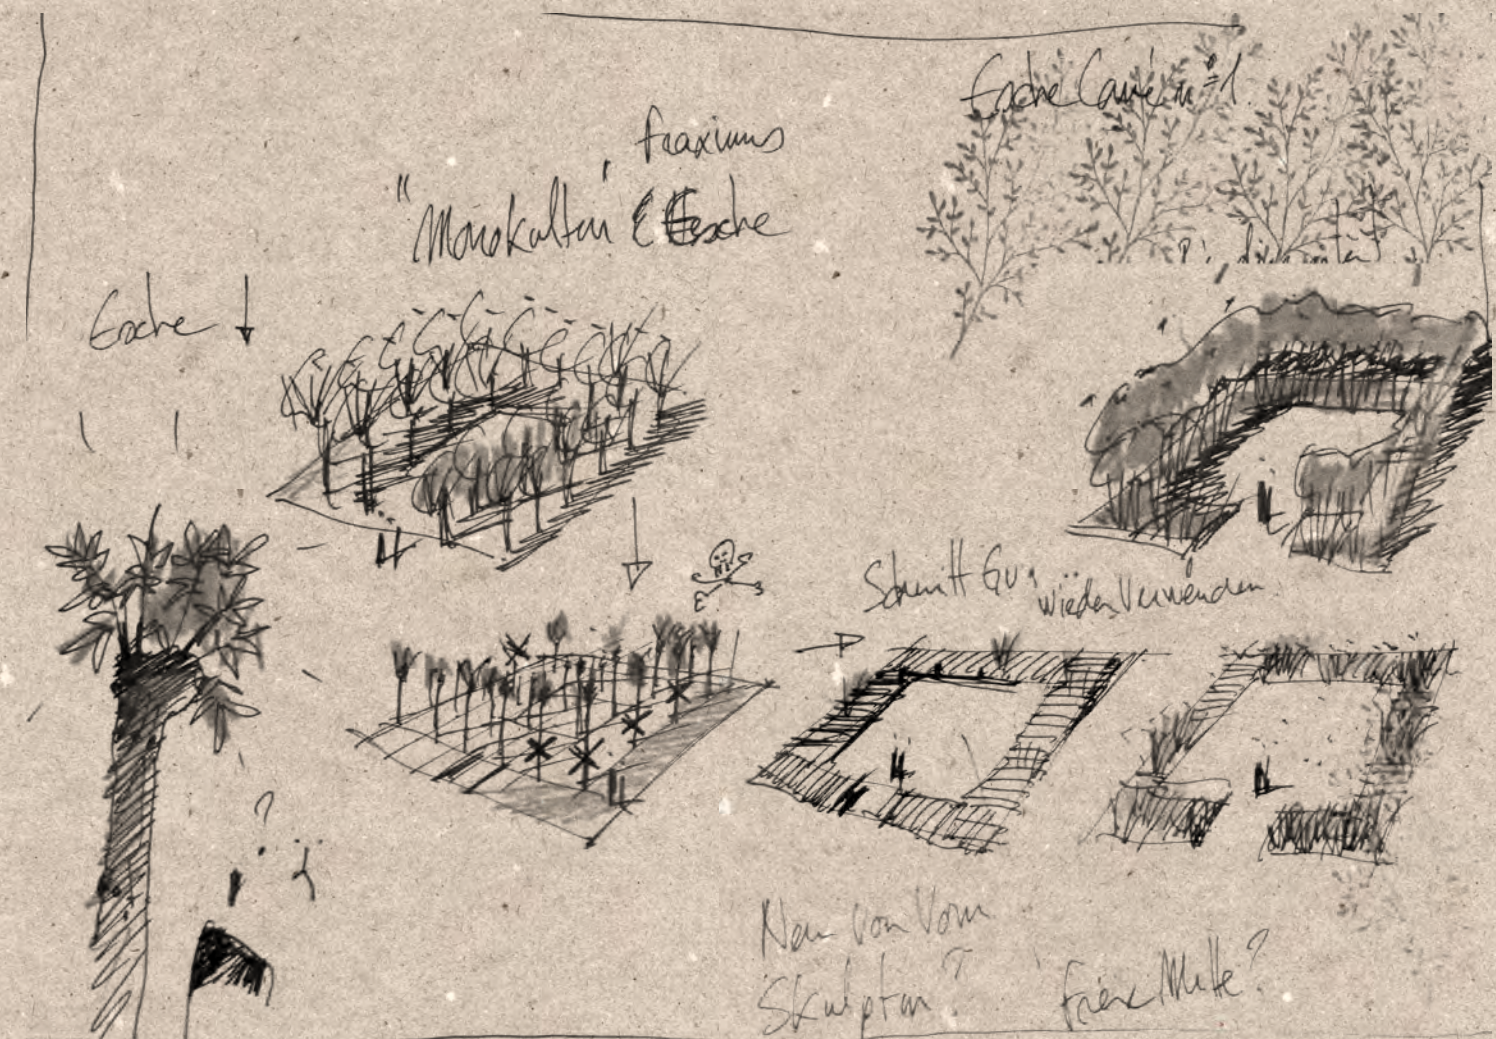 Esche Carré n°1
Fraxinus
"Monokultur" Esche
Esche
Schnitt Gu
wieder Verwenden
?
Neu von Vorn
Skulptur ?
Freie Mitte?